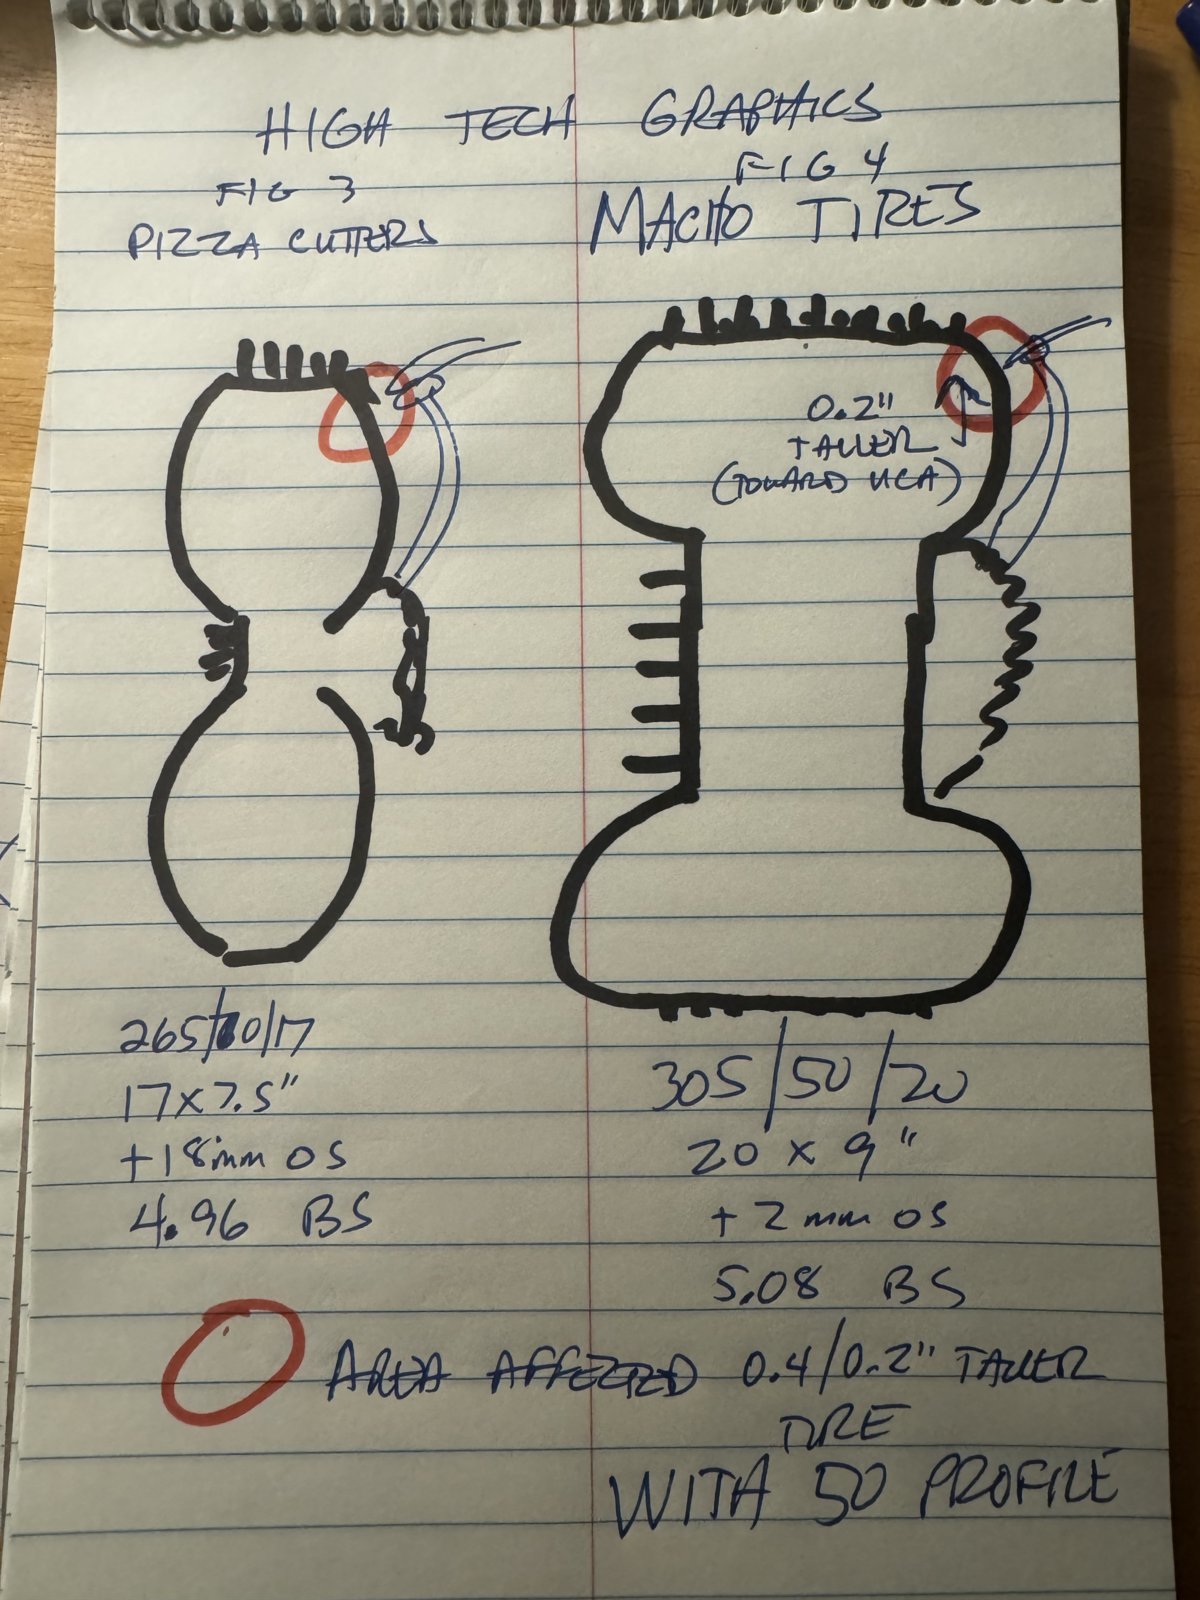 HIGH TECH GRAPHICS
FIG 3
PIZZA CUTTERS
FIG 4
MACHO TIRES
0.2"
TALLER
(TOWARD UCA)
265/70/17
17x7.5"
+18mm OS
4.96 BS
305/50/20
20 x 9"
+2mm OS
5.08 BS
AREA AFFECTED 0.4/0.2" TALLER
TIRE
WITH 50 PROFILE